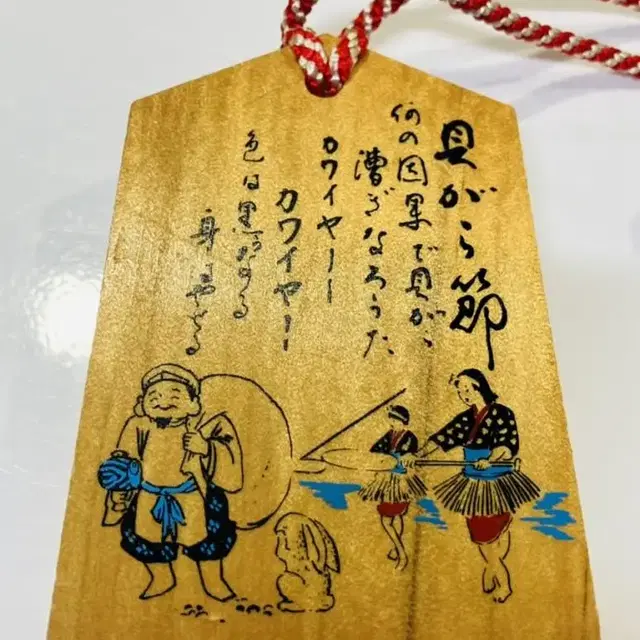 貝がら節
何の因果で貝がら
漕ぎなろうた
カワイヤーー
カワイヤー
色は黒なる
身はやせる